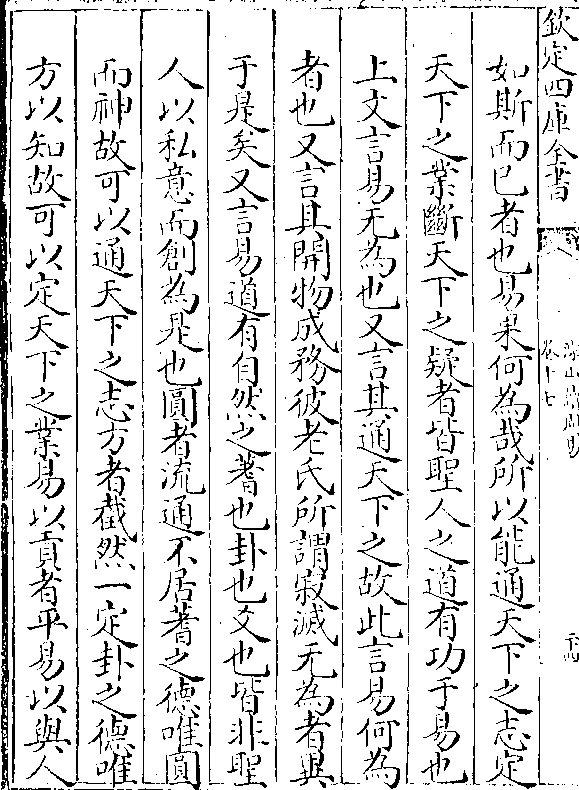 欽定四庫全書
卷十七
如斯而已者也易果何為哉所以能通天下之志定
天下之業斷天下之疑者皆聖人之道有功于易也
上文言易无為也又言其通天下之故此言易何為
者也又言其開物成務彼老氏所謂寂滅无為者異
于是矣又言易道有自然之蓍也卦也爻也皆非聖
人以私意而創為是也圓者流通不居蓍之德唯圓
而神故可以通天下之志方者截然一定卦之德唯
方以知故可以定天下之業易以貢者平易以與人